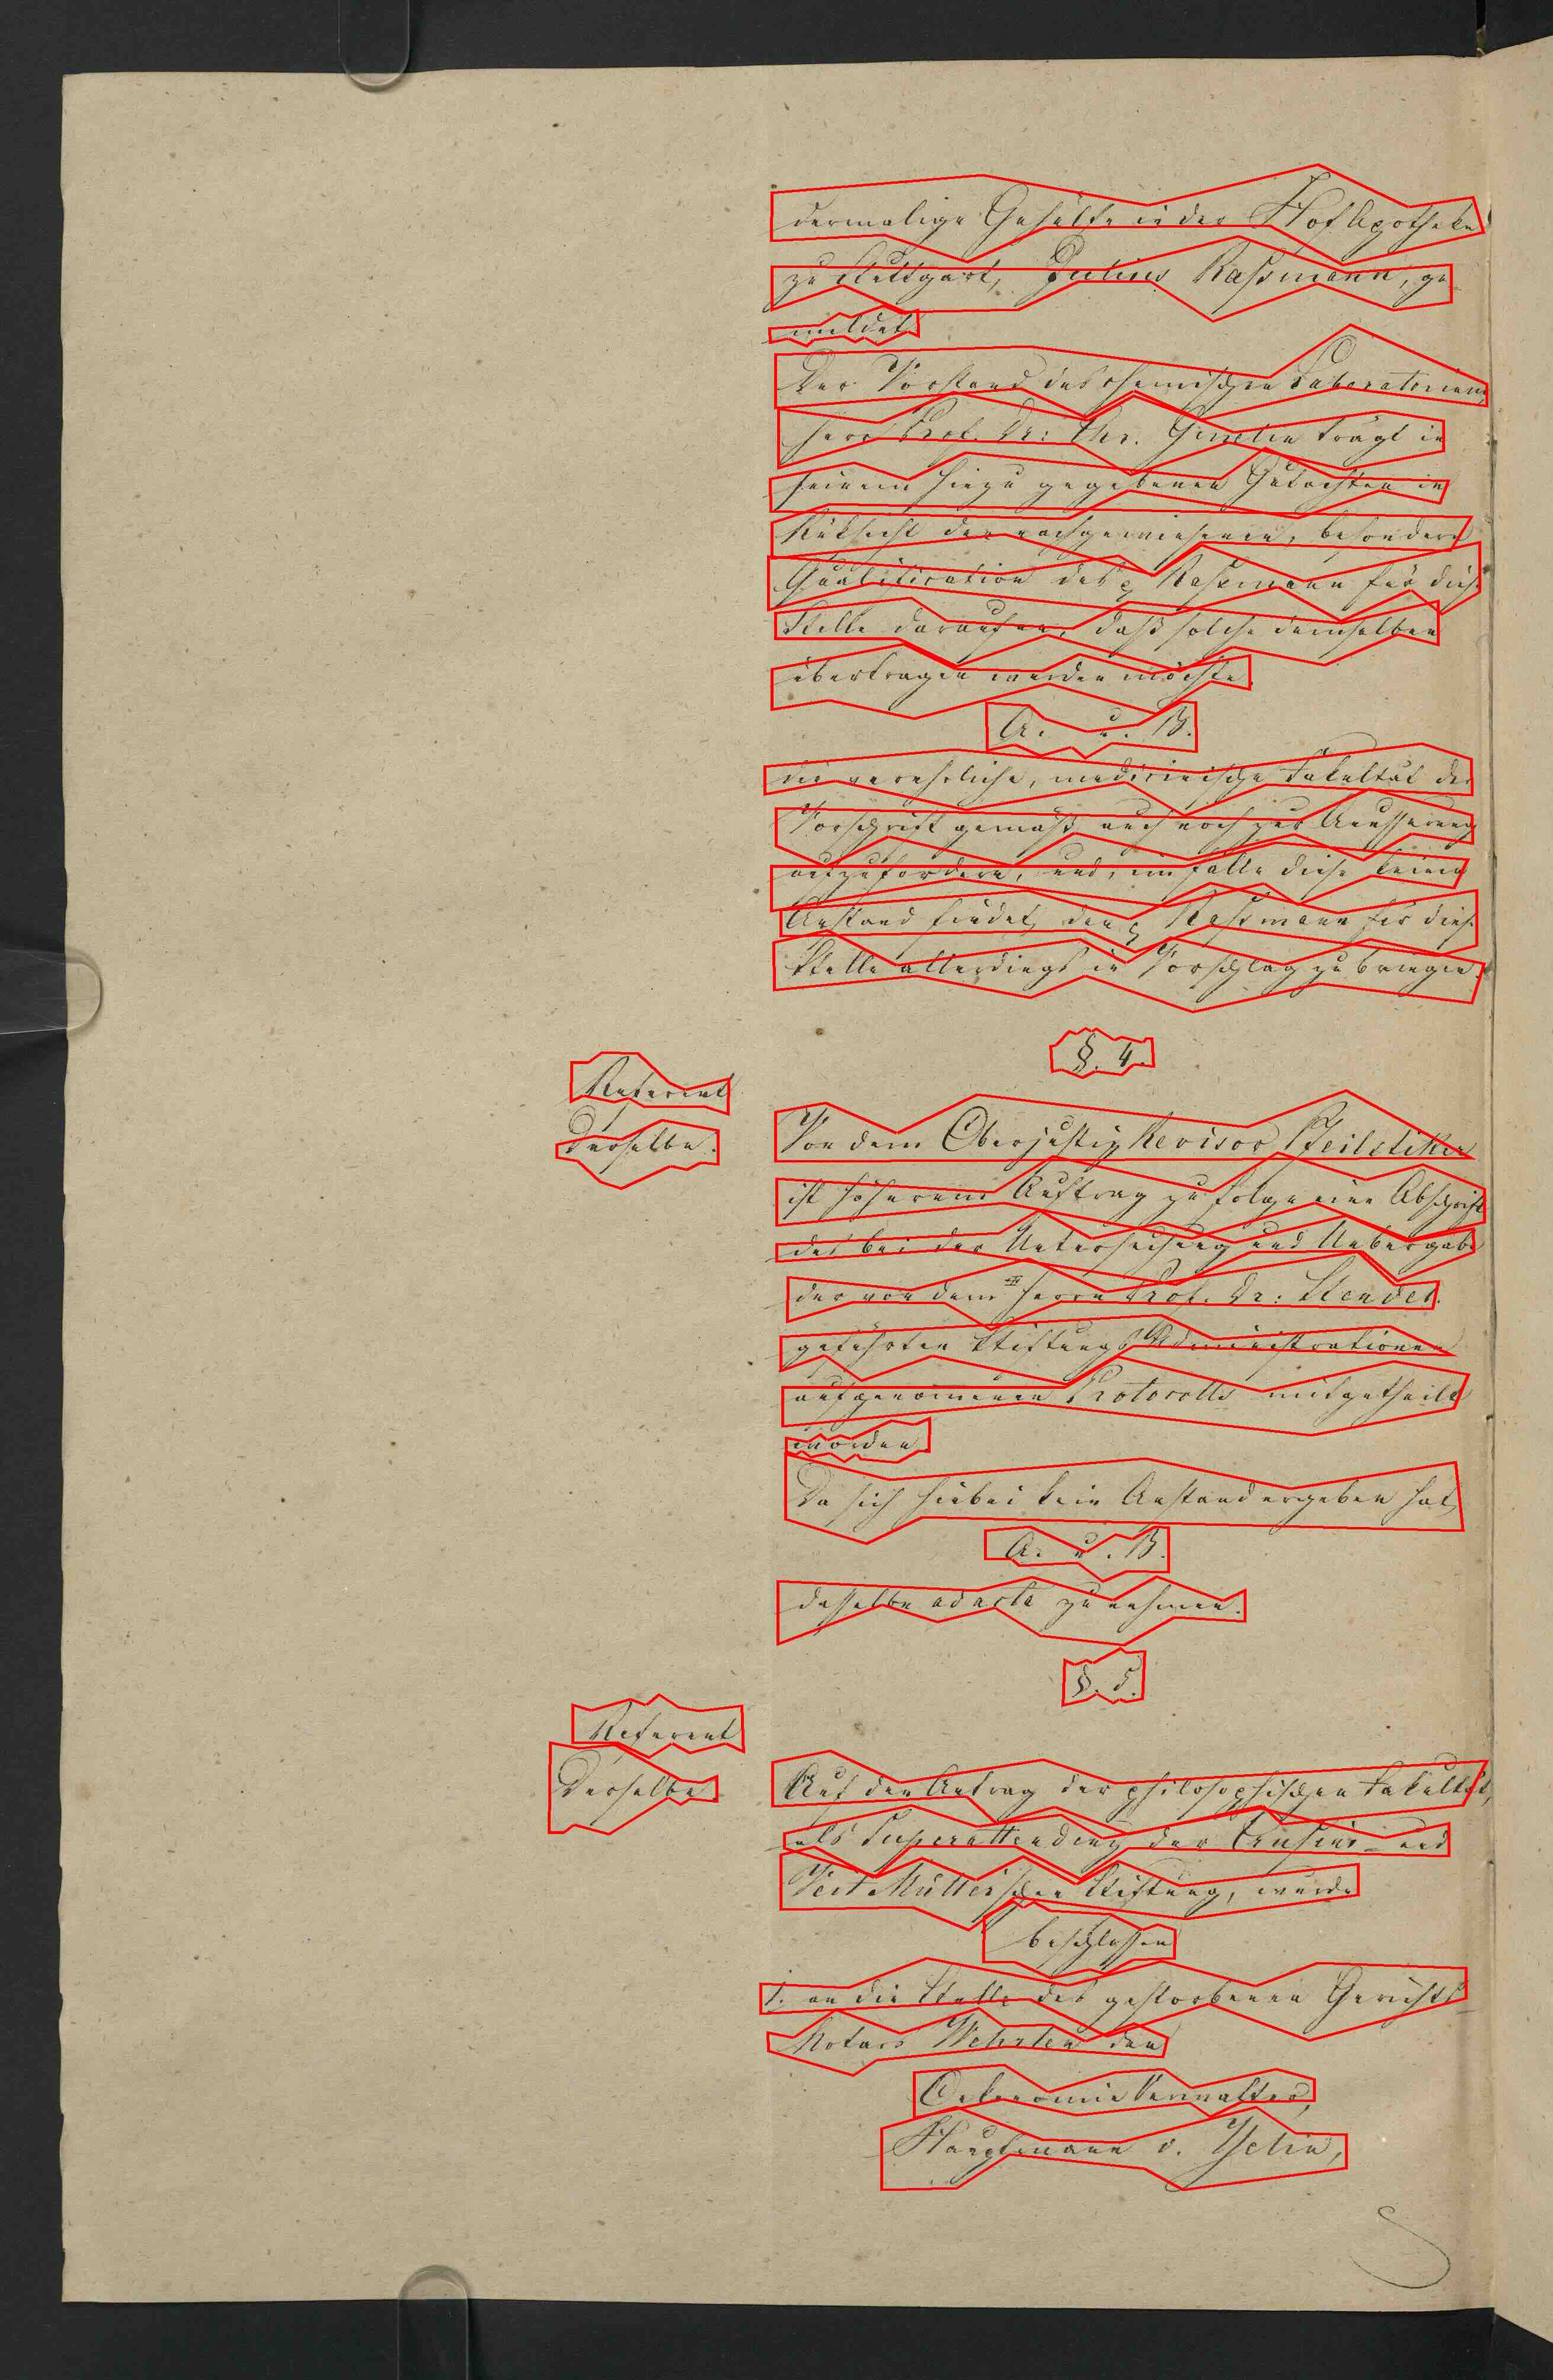 dermalige Gehülfe in der Hof Apotheke
zu Stuttgart, Julius Raßmann, ge
meldet.
Der Vorstand des chemischen Laboratoriums,
Herr Prof. Dr: Chr. Gmelin trägt in
seinem hiezu gegebenen Gutachten in
Rüksicht der nachgewiesenen, besondern
Qualification des p Raßmann für diese
Stelle darauf an, daß solche demselben
übertragen werden möchte.
A. u. B.
die verehrliche, medicinische Fakultät der
Vorschrift gemäß auch noch zur Aeusserung
aufzufordern, und, im Falle diese keinen
Anstand findet, den p Raßmann für diese
Stelle allerdings in Vorschlag zu bringen.
§. 4.
Referent
Derselbe.
Von dem Oberjustiz Revisor Pfeilstiker
ist höherem Auftrag zu folge eine Abschrift
des bei der Untersuchung und Uebergabe
der von dem Herrn Prof. Dr: Steudel
geführten Stiftungs Administrationen
aufgenommenen Protocolls mitgetheilt
worden.
Da sich hiebei kein Anstand ergeben hat,
A. u. B.
dasselbe ad acta zu nehmen.
§. 5.
Referent
Derselbe
Auf den Antrag der philosophischen Fakultät,
als Superattendenz der Crusius- und
Veit Müller'schen Stiftung, wurde
beschlossen
1. an die Stelle des gestorbenen Gerichts
Notars Wehrlen den
Oekonomie Verwalter,
Hauptmann v. Yelin,